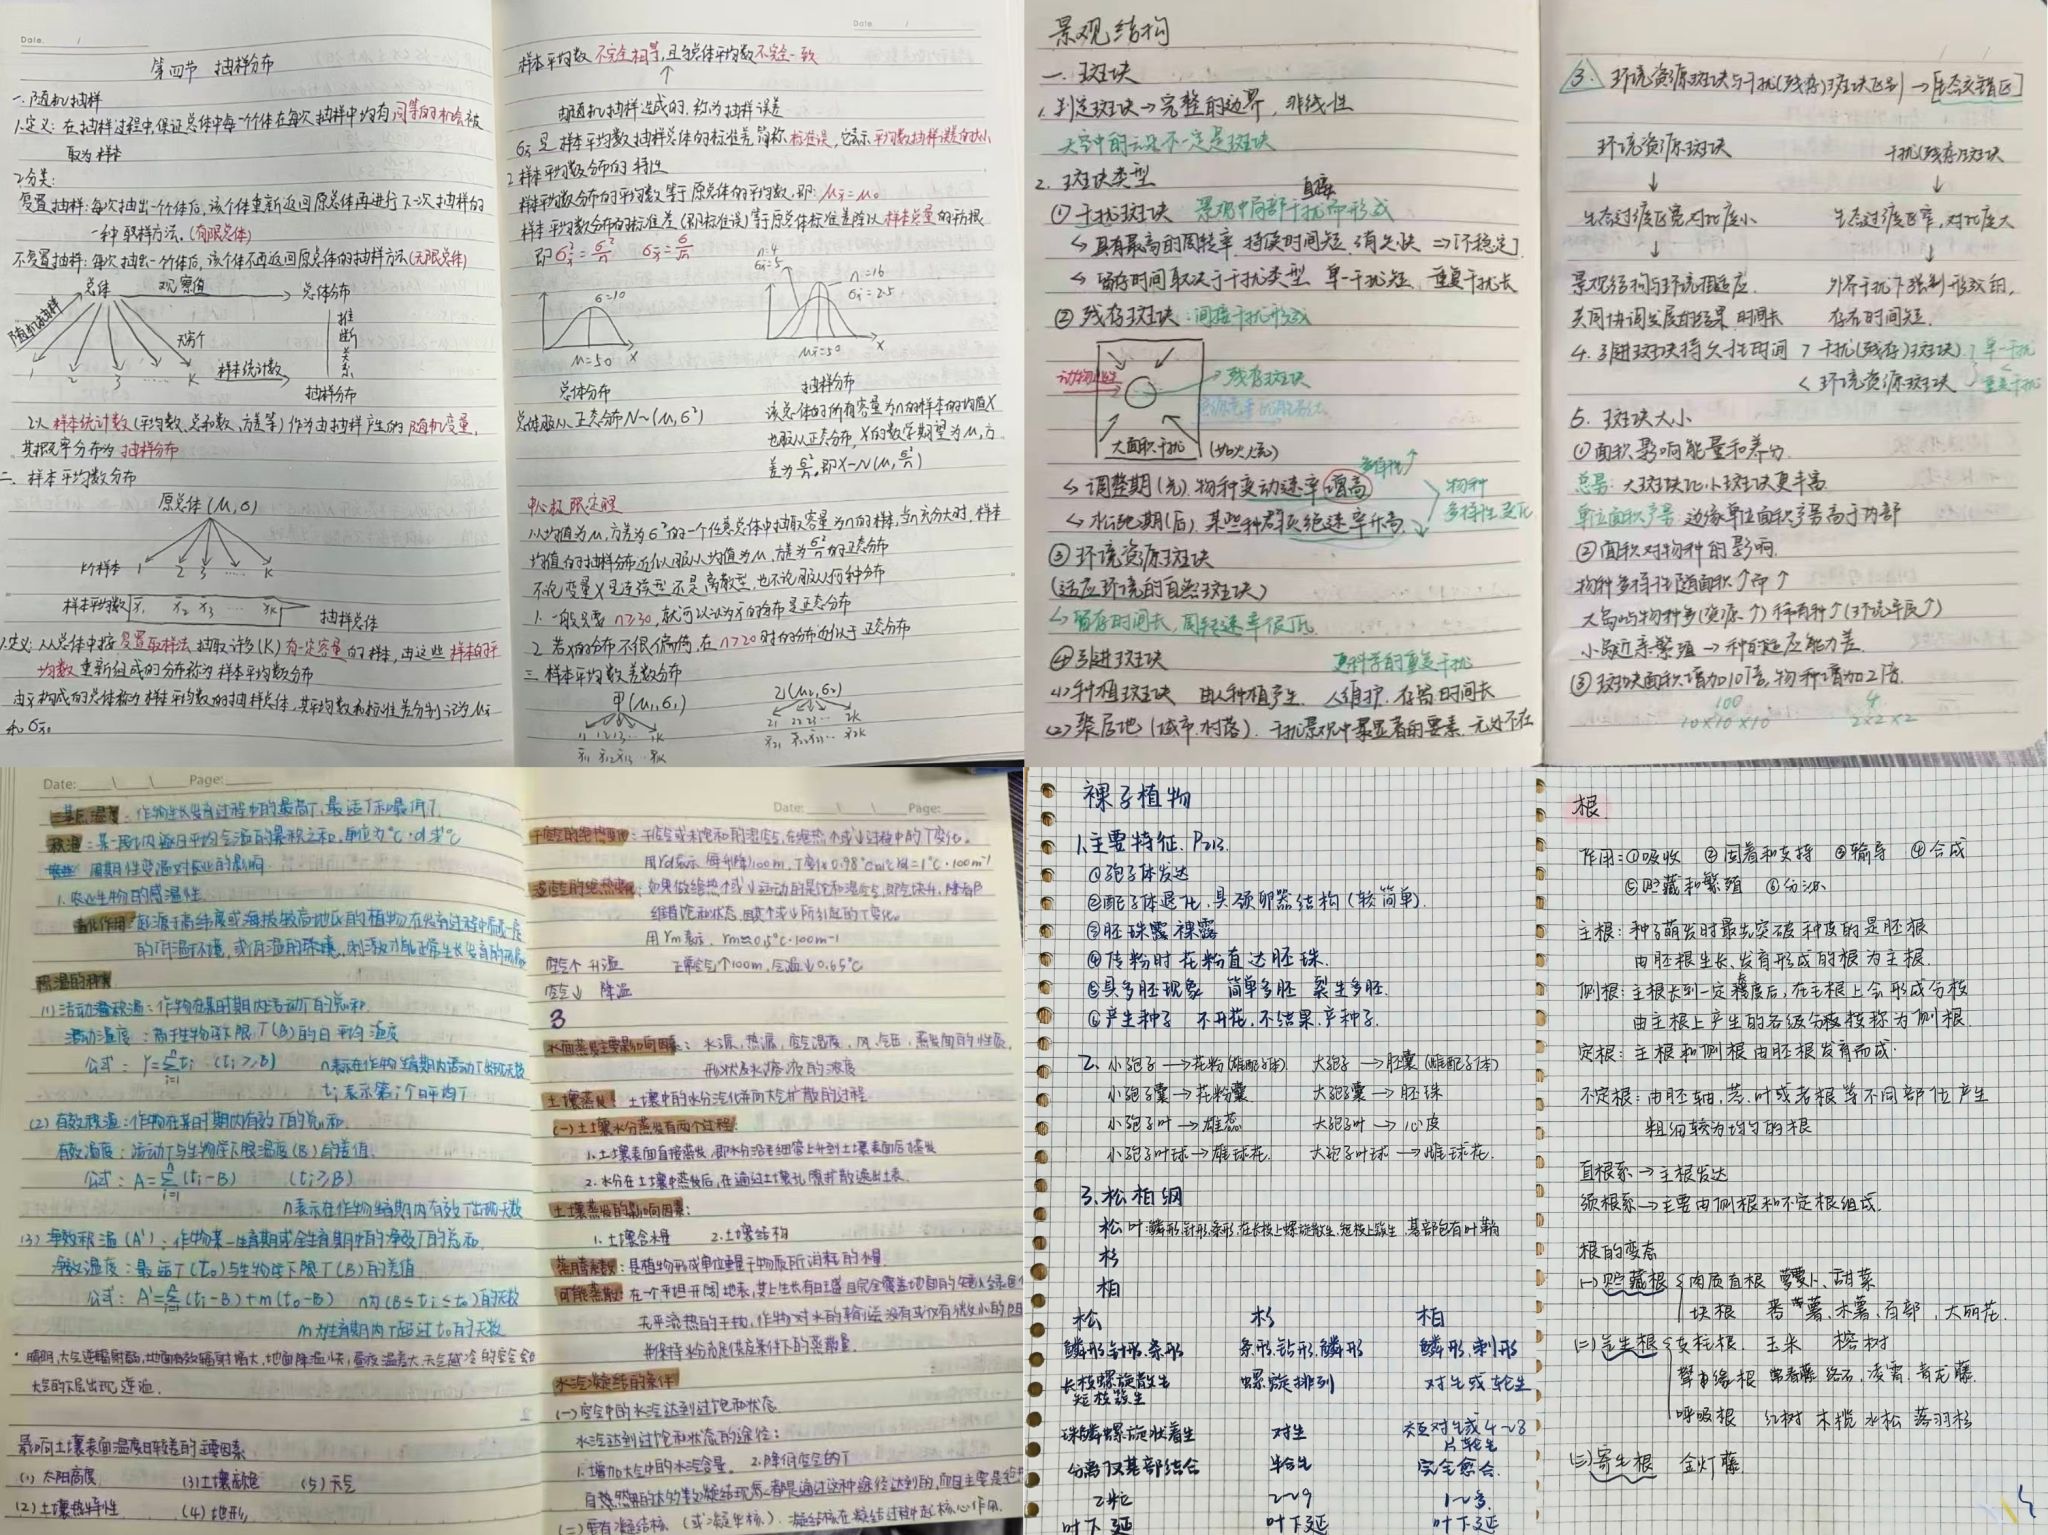 Date. /
第四节 抽样分布
一.随机抽样
1.定义: 在抽样过程中,保证总体中每一个个体在每次抽样中均有同等的机会被
取为样本
2.分类:
复置抽样: 每次抽出一个个体后,该个体重新返回原总体再进行下一次抽样的
一种取样方法.(有限总体)
不复置抽样: 每次抽出一个个体后,该个体不再返回原总体的抽样方法(无限总体)
总体 观察值 总体分布
随机抽样
无穷个
推断关系
1 2 3 ..... K 样本统计数
抽样分布
以样本统计数(平均数、总和数、方差等)作为由抽样产生的随机变量,
其概率分布为抽样分布
二. 样本平均数分布
原总体(μ,σ)
K个样本 1 2 3 .... K
样本平均数 x̄₁ x̄₂ x̄₃ ... x̄K 抽样总体
1.定义: 从总体中按复置取样法抽取许多(K)有一定容量的样本,由这些样本的平
均数重新组成的分布称为样本平均数分布
由x̄构成的总体称为样本平均数的抽样总体,其平均数和标准差分别记为μx̄
和σx̄
Date /
样本平均数不完全相等,且与总体平均数不完全一致
↑
由随机抽样造成的,称为抽样误差
σx̄是样本平均数抽样总体的标准差,简称标准误,它表示平均数抽样误差的大小
2.样本平均数分布的特性
样本平均数分布的平均数等于原总体的平均数,即: μx̄=μ。
样本平均数分布的标准差(即标准误)等于原总体标准差除以样本总量的平方根
即σ²x̄=σ²/n σx̄=σ/√n
n=4
σx̄=5
σ=10
n=16
σx̄=2.5
μ=50 x
μx̄=50 x
总体分布 抽样分布
总体服从正态分布N~(μ,σ²) 该总体的所有容量为n的样本的均值X
也服从正态分布, X的数学期望为μ,方
差为σ²/n。即X~N(μ,σ²/n)
中心极限定理
从均值为μ,方差为σ²的一个任意总体中抽取容量为n的样本,当n充分大时,样本
均值的抽样分布近似服从均值为μ、方差为σ²/n的正态分布
不论变量X是连续型还是离散型,也不论服从何种分布
1. 一般只要n≥30,就可以认为x̄的分布是正态分布
2. 若x的分布不很偏倚,在n>20时的分布近似于正态分布
三.样本平均数差数分布
甲(μ₁,σ₁) 乙(μ₂,σ₂)
11 12 13... 1K 21 22 23... 2K
x̄11 x̄12 x̄13 ... x̄1K x̄21 x̄22 x̄23... x̄2K
景观结构
一.斑块
1.判定斑块→完整的边界,非线性
天空中的云朵不一定是斑块
2.斑块类型
①干扰斑块 景观中局部直接干扰而形成
↳具有最高的周转率,持续时间短,消失快 ⇒[不稳定]
↳留存时间取决于干扰类型 单一干扰短 重复干扰长
②残存斑块:间接干扰形成
→残存斑块
大面积干扰 (如火灾)
多样性↑
↳调整期(先).物种变动速率增高
↳松弛期(后).某些种群灭绝速率升高
物种
多样性变化
③环境资源斑块
(适应环境的自然斑块)
↳留存时间长,周转速率很低
④引进斑块 更科学的重复干扰
(1)种植斑块 由人种植产生.人维护.存留时间长
(2)聚居地(城市.村落).干扰景观中最显著的要素.无处不在
3. 环境资源斑块与干扰(残存)斑块区别→[生态交错区]
环境资源斑块 干扰(残存)斑块
↓ ↓
生态过渡区宽对比度小 生态过渡区窄,对比度大
↓ ↓
景观结构与环境相适应 外界干扰下强制形成的,
共同协调发展的结果 时间长 存在时间短.
4.引进斑块持久性时间 > 干扰(残存)斑块 单一干扰
< 环境资源斑块 重复干扰
5. 斑块大小
①面积影响能量和养分
总量: 大斑块比小斑块更丰富
单位面积产量 边缘单位面积产量高于内部
②面积对物种的影响
物种多样性随面积↑而↑
大岛屿物种多(资源↑)稀有种↑(环境异质↑)
小岛近亲繁殖→种的适应能力差
③斑块面积增加10倍,物种增加2倍
100 4
10×10×10 2×2×2
Date: \ \ Page:
三基点温度:作物生长发育过程中的最高T,最适T和最低T
积温:某一段时间内逐日平均气温的累积之和,单位为℃·d或℃
周期性变温对农业的影响
1.农业生物的感温性
春化作用:起源于高纬度或海拔较高地区的植物在发育过程中需要一段
积温的种类
(1)活动积温:作物在某时期内活动T的总和.
活动温度:高于生物学下限T(B)的日平均温度
公式: Y=Σti (ti≥B) n表示在作物生育期内活动T出现天数
ti表示第i个日平均T
(2)有效积温:作物在某时期内有效T的总和.
有效温度:活动T与生物学下限温度(B)的差值.
公式: A=Σ(ti-B) (ti≥B)
n表示在作物生育期内有效T出现天数
(3)净效积温(A'):作物某一生育期或全生育期中的净效T的总和.
净效温度:最适T(t₀)与生物学下限T(B)的差值
公式: A'=Σ(ti-B)+m(t₀-B) n为(B≤ti≤t₀)的天数
m为生育期内T超过t₀的天数
大气的下层出现逆温.
影响土壤表面温度日较差的主要因素
(1)太阳高度 (3)土壤颜色 (5)天气
(2)土壤热特性 (4)地形
Date: \ \ Page:
干空气的绝热变化:干空气或未饱和的湿空气,在绝热个或↓过程中的T变化.
用Yd表示,每升降100m,T变化0.98℃ Yd=1℃·100m⁻¹
维持饱和状态,由其个或↓所引起的T变化。
用Ym表示,Ym≈0.5℃·100m⁻¹
空气个 升温 正常空气个100m,气温↓0.65℃
空气↓ 降温
3
水面蒸发主要影响因素: 水源,热源,空气湿度,风,气压,蒸发面的性质
形状及水溶液的浓度
土壤蒸发: 土壤中的水分汽化并向大气扩散的过程
(一)土壤水分蒸发有两个过程:
1.土壤表面直接蒸发,即水分沿毛细管上升到土壤表面后蒸发
2.水分在土壤中蒸发后,在通过土壤孔隙扩散逸出土表
土壤蒸发的影响因素:
1.土壤含水量 2.土壤结构
蒸腾系数:是植物形成单位重量干物质所消耗的水量
水汽凝结的条件
(一)空气中的水汽达到过饱和状态
水汽达到过饱和状态的途径:
1.增加大气中的水汽含量. 2.降低空气的T
自然界中的大多数凝结现象都是通过这种途径达到的,而且主要是绝热
(二)要有凝结核(或凝华核).凝结核在凝结过程中起核心作用.
裸子植物
1.主要特征. P213.
①孢子体发达
②配子体退化,具颈卵器结构(较简单).
③胚珠裸露
④传粉时花粉直达胚珠.
⑤具多胚现象 简单多胚 裂生多胚.
⑥产生种子 不开花,不结果,产种子.
2. 小孢子→花粉(雄配子体) 大孢子→胚囊(雌配子体)
小孢子囊→花粉囊 大孢子囊→胚珠
小孢子叶→雄蕊 大孢子叶→心皮
小孢子叶球→雄球花. 大孢子叶球→雌球花.
3.松柏纲
松 叶鳞形,针形,条形,在长枝上螺旋散生,短枝上簇生,基部包有叶鞘
杉
柏
松 杉 柏
鳞形,针形,条形 条形,钻形,鳞形 鳞形,刺形
长枝螺旋散生 螺旋排列 对生或轮生
短枝簇生
珠鳞螺旋状着生 对生 交互对生或4~8
片轮生
分离仅基部结合 半合生 完全愈合.
2粒 2~9 1~多.
叶下延 叶下延 叶下延
根
作用:①吸收 ②固着和支持 ③输导 ④合成
⑤贮藏和繁殖 ⑥分泌
主根: 种子萌发时最先突破种皮的是胚根
由胚根生长、发育形成的根为主根.
侧根:主根长到一定程度后,在主根上会形成分枝
由主根上产生的各级分枝按称为侧根
定根:主根和侧根由胚根发育而成.
不定根:由胚轴,茎.叶或老根等不同部位产生
粗细较为均匀的根
直根系→主根发达
须根系→主要由侧根和不定根组成.
根的变态
(一)贮藏根 肉质直根 萝卜、甜菜
块根 番薯、木薯、百部,大丽花.
(二)气生根 支柱根. 玉米 榕树
攀缘根 常春藤 络石,凌霄.青龙藤.
呼吸根 红树 木榄 水松 落羽杉
(三)寄生根 金灯藤.